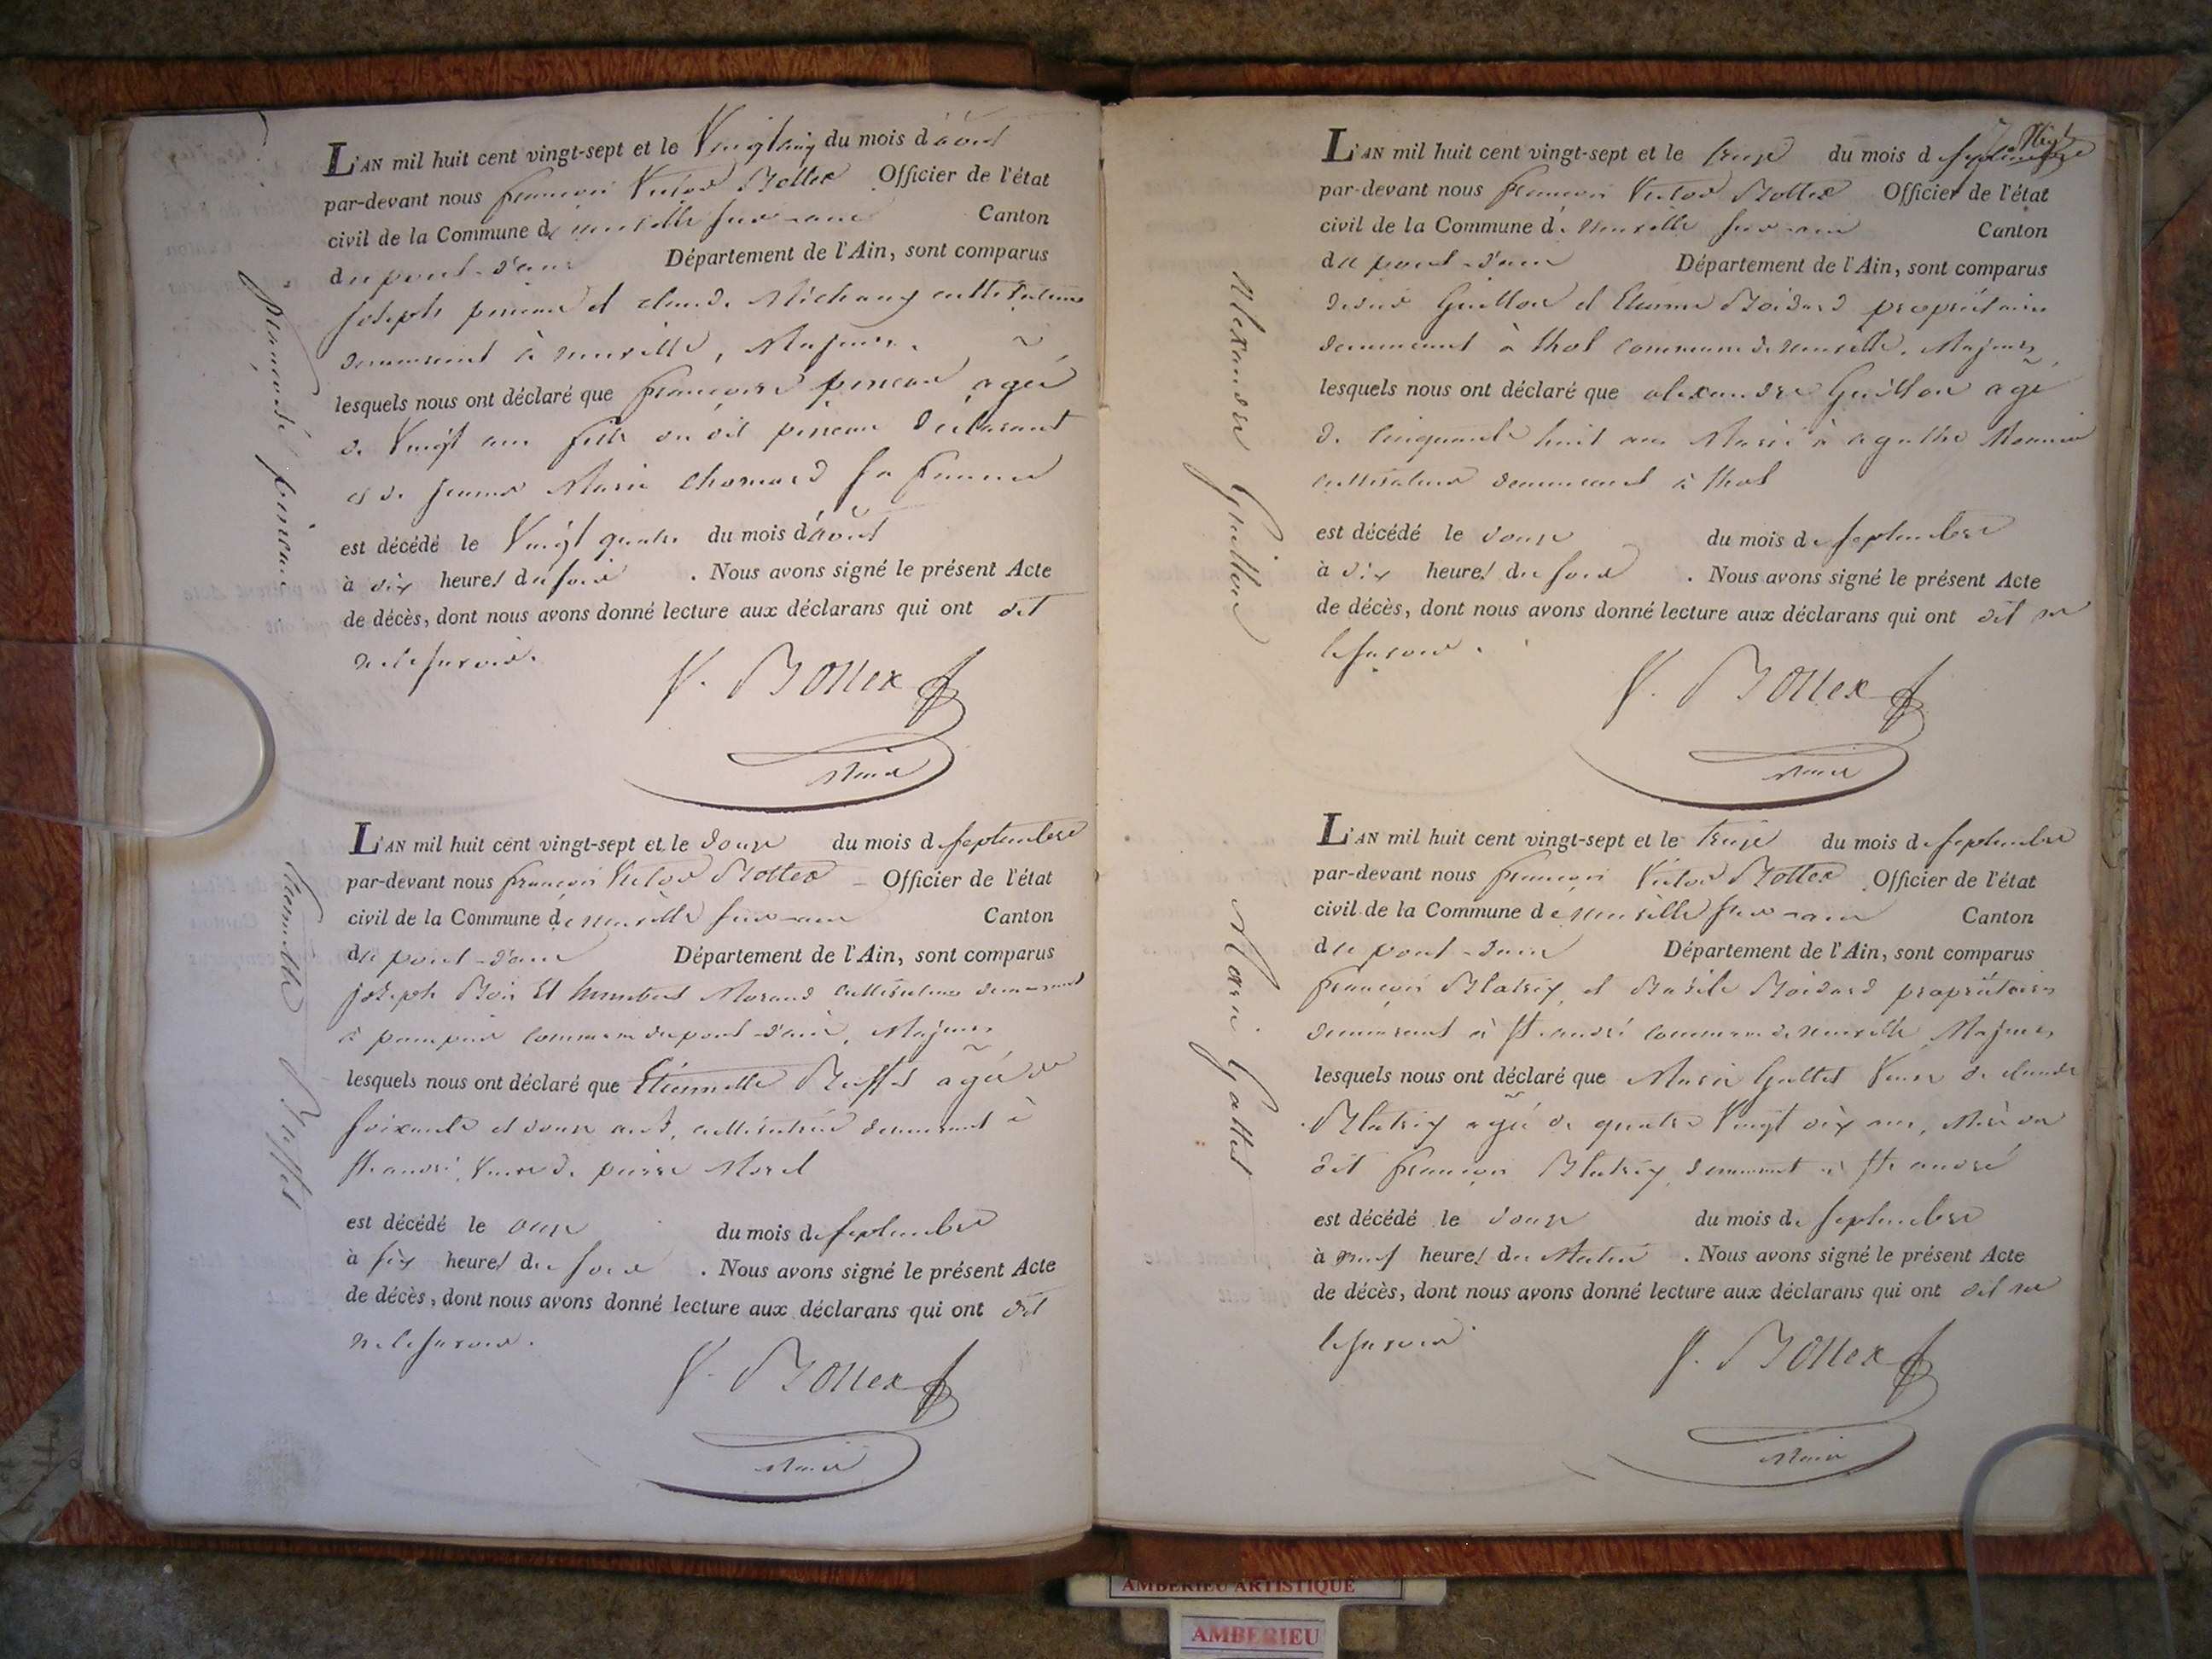 L'AN mil huit cent vingt-sept et le Vingt cinq du mois d'août
par-devant nous françois Victor Bottex Officier de l'état
civil de la Commune de neuville sur-ain Canton
du pont-d'ain Département de l'Ain, sont comparus
Joseph et claude Michaux cultivateurs
demeurant à neuville, Majeurs.
lesquels nous ont déclaré que françoise agée
de Vingt ans fille du dit déclarant
et de Jeanne Marie Chomard sa femme
est décédé le Vingt quatre du mois d'août
à dix heures du soir . Nous avons signé le présent Acte
de décès, dont nous avons donné lecture aux déclarans qui ont dit
ne le savoir.
V. Bottex
Maire
françoise
L'AN mil huit cent vingt-sept et le douze du mois de septembre
par-devant nous françois Victor Bottex Officier de l'état
civil de la Commune de neuville sur-ain Canton
du pont-d'ain Département de l'Ain, sont comparus
Joseph Boin Et humbert Morand cultivateurs demeurant
à commune du pont-d'ain, Majeurs
lesquels nous ont déclaré que Etiennette Buffet agée de
soixante et douze ans, cultivatrice demeurant à
St. andré, Veuve de pierre Morel
est décédé le onze du mois de septembre
à six heures du soir . Nous avons signé le présent Acte
de décès, dont nous avons donné lecture aux déclarans qui ont dit
ne le savoir.
V. Bottex
Maire
Etiennette Buffet
L'AN mil huit cent vingt-sept et le treize du mois de septembre
par-devant nous françois Victor Bottex Officier de l'état
civil de la Commune de neuville sur-ain Canton
du pont-d'ain Département de l'Ain, sont comparus
Guillon et Etienne Boidard propriétaires
demeurant à thol commune de neuville, Majeurs
lesquels nous ont déclaré que alexandre Guillon agé
de cinquante huit ans Marié à agathe Monnier
cultivateur demeurant à thol
est décédé le douze du mois de septembre
à dix heures du soir . Nous avons signé le présent Acte
de décès, dont nous avons donné lecture aux déclarans qui ont dit ne
le savoir.
V. Bottex
Maire
Alexandre Guillon
L'AN mil huit cent vingt-sept et le treize du mois de septembre
par-devant nous françois Victor Bottex Officier de l'état
civil de la Commune de neuville sur-ain Canton
du pont-d'ain Département de l'Ain, sont comparus
françois Blatrix, et Basile Boidard propriétaires
demeurant à St. andré commune de neuville, Majeurs,
lesquels nous ont déclaré que Marie Gallet Veuve de claude
Blatrix agée de quatre Vingt dix ans, Mère du
dit françois Blatrix, demeurant à St. andré
est décédé le douze du mois de septembre
à neuf heures du Matin . Nous avons signé le présent Acte
de décès, dont nous avons donné lecture aux déclarans qui ont dit ne
le savoir
V. Bottex
Maire
Marie Gallet
AMBERIEU ARTISTIQUE
AMBERIEU